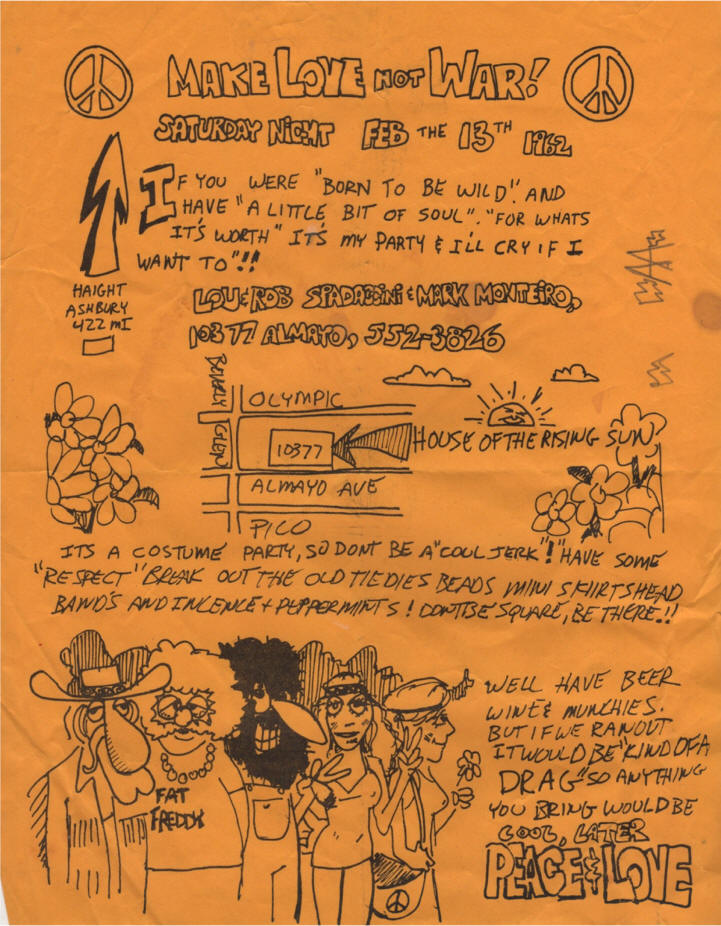 MAKE LOVE NOT WAR!
SATURDAY NIGHT FEB THE 13TH 1962
IF YOU WERE "BORN TO BE WILD". AND
HAVE "A LITTLE BIT OF SOUL". "FOR WHATS
IT'S WORTH" IT'S MY PARTY & I'LL CRY IF I
WANT TO"!!
HAIGHT
ASHBURY
422 MI
LOU & ROB SPADACCINI & MARK MONTEIRO,
10377 ALMAYO, 552-3826
BEVERLY GLEN
OLYMPIC
10377
HOUSE OF THE RISING SUN?
ALMAYO AVE
PICO
ITS A COSTUME PARTY, SO DONT BE A "COOL JERK"! "HAVE SOME
"RESPECT" BREAK OUT THE OLD TIEDIES BEADS MINI SKIRTS HEAD
BAND'S AND INCENCE & PEPPERMINTS! DONT BE SQUARE, BE THERE!!
WELL HAVE BEER
WINE & MUNCHIES.
BUT IF WE RAN OUT
IT WOULD BE "KIND OF A
DRAG" SO ANYTHING
YOU BRING WOULD BE
COOL, LATER
PEACE & LOVE
FAT
FREDDY